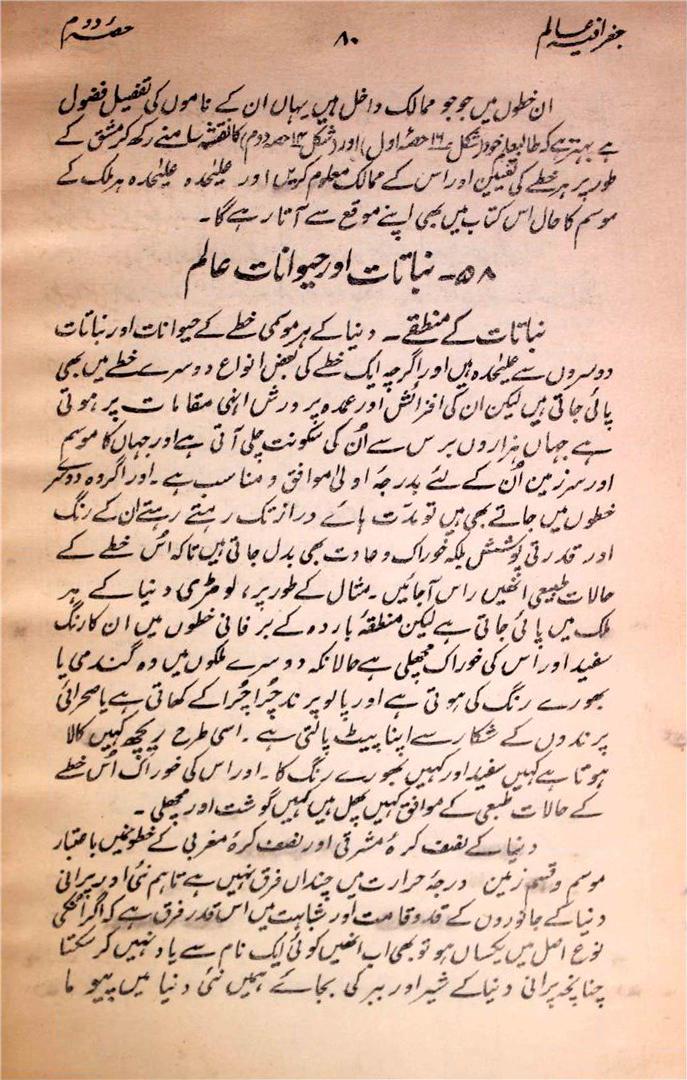 جغرافیۂ عالم ۸۰ حصۂ دوم
ان خطوں میں جو جو ممالک داخل ہیں یہاں ان کے ناموں کی تفصیل فضول
ہے بہتر ہے کہ طالبعلم خود (شکل ۱۶ حصۂ اول) اور (شکل ۱۴ حصہ دوم) کا نقشہ سامنے رکھ کر مشق کے
طور پر ہر خطے کی تعیین اور اس کے ممالک معلوم کریں اور علیٰحدہ علیٰحدہ ہر ملک کے
موسم کا حال اس کتاب میں بھی اپنے موقع سے آتا رہے گا۔
۵۸۔ نباتات اور حیوانات عالم
نباتات کے منطقے۔ دنیا کے ہر موسمی خطے کے حیوانات اور نباتات
دوسروں سے علیٰحدہ ہیں اور اگرچہ ایک خطے کی بعض انواع دوسرے خطے میں بھی
پائی جاتی ہیں لیکن ان کی افزائش اور عمدہ پرورش انہی مقامات پر ہوتی
ہے جہاں ہزاروں برس سے اُن کی سکونت چلی آتی ہے اور جہاں کا موسم
اور سرزمین اُن کے لئے بدرجۂ اولیٰ موافق و مناسب ہے۔ اور اگر وہ دوسرے
خطوں میں جاتے بھی ہیں تو مدت ہائے دراز تک رہتے رہتے ان کے رنگ
اور قدرتی پوشش بلکہ خوراک و عادت بھی بدل جاتی ہیں تاکہ اُس خطے کے
حالات طبیعی انھیں راس آجائیں۔ مثال کے طور پر، لومڑی دنیا کے ہر
ملک میں پائی جاتی ہے لیکن منطقۂ باردہ کے برفانی خطوں میں ان کا رنگ
سفید اور اس کی خوراک مچھلی ہے حالانکہ دوسرے ملکوں میں وہ گندمی یا
بھورے رنگ کی ہوتی ہے اور پالو پرند چُرا چُرا کے کھاتی ہے یا صحرائی
پرندوں کے شکار سے اپنا پیٹ پالتی ہے۔ اسی طرح ریچھ کہیں کالا
ہوتا ہے کہیں سفید اور کہیں بھورے رنگ کا۔ اور اس کی خوراک اُس خطے
کے حالات طبعی کے موافق کہیں پھل ہیں کہیں گوشت اور مچھلی۔
دنیا کے نصف کرۂ مشرقی اور نصف کرۂ مغربی کے خطوں میں باعتبار
موسم و قسم زمین درجۂ حرارت میں چنداں فرق نہیں ہے تاہم نئی اور پرانی
دنیا کے جانوروں کے قد و قامت اور شباہت میں اس قدر فرق ہے کہ اگر انکی
نوع اصل میں یکساں ہو تو بھی اب انھیں کوئی ایک نام سے یاد نہیں کر سکتا
چنانچہ پرانی دنیا کے شیر اور ببر کی بجائے ہمیں نئی دنیا میں پیو ما